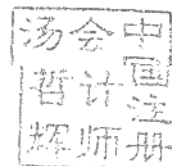 中国注册
会计师
汤哲